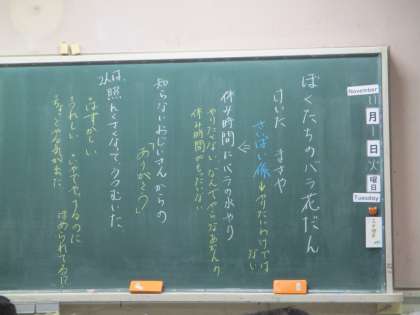 November
11
月
1
日
火
曜
日
Tuesday
ぼくたちのバラ花だん
けいた まさや
さいばい係
休み時間にバラの水やり
やりたくない なんでやらなあかんの
休み時間がもったいない
知らないおじいさんからの
「ありがとう」
2人は、照れくさくなって、うつむいた。
はずかしい
うれしい いやいややってるのに
ほめられてる